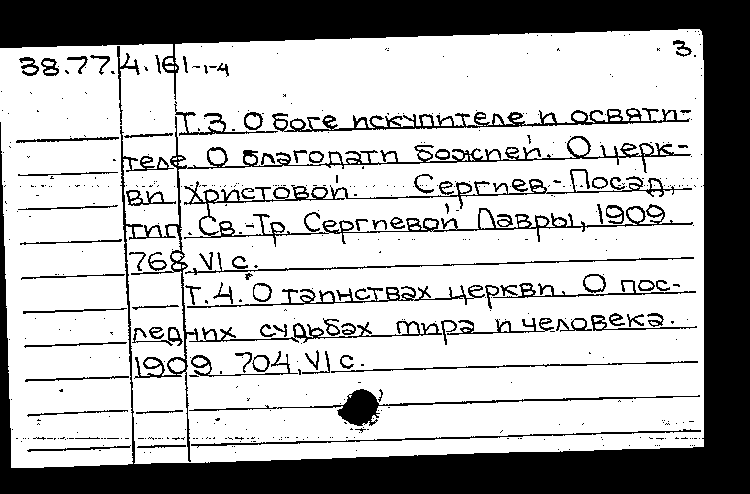 3.
38.77.4.161-1-4
Т.3. О боге искупителе и освяти-
теле. О благодати божией. О церк-
ви Христовой. Сергиев-Посад,
тип. Св.-Тр. Сергиевой Лавры, 1909.
768, VI с.
Т.4. О таинствах церкви. О пос-
ледних судьбах мира и человека.
1909. 704, VI с.